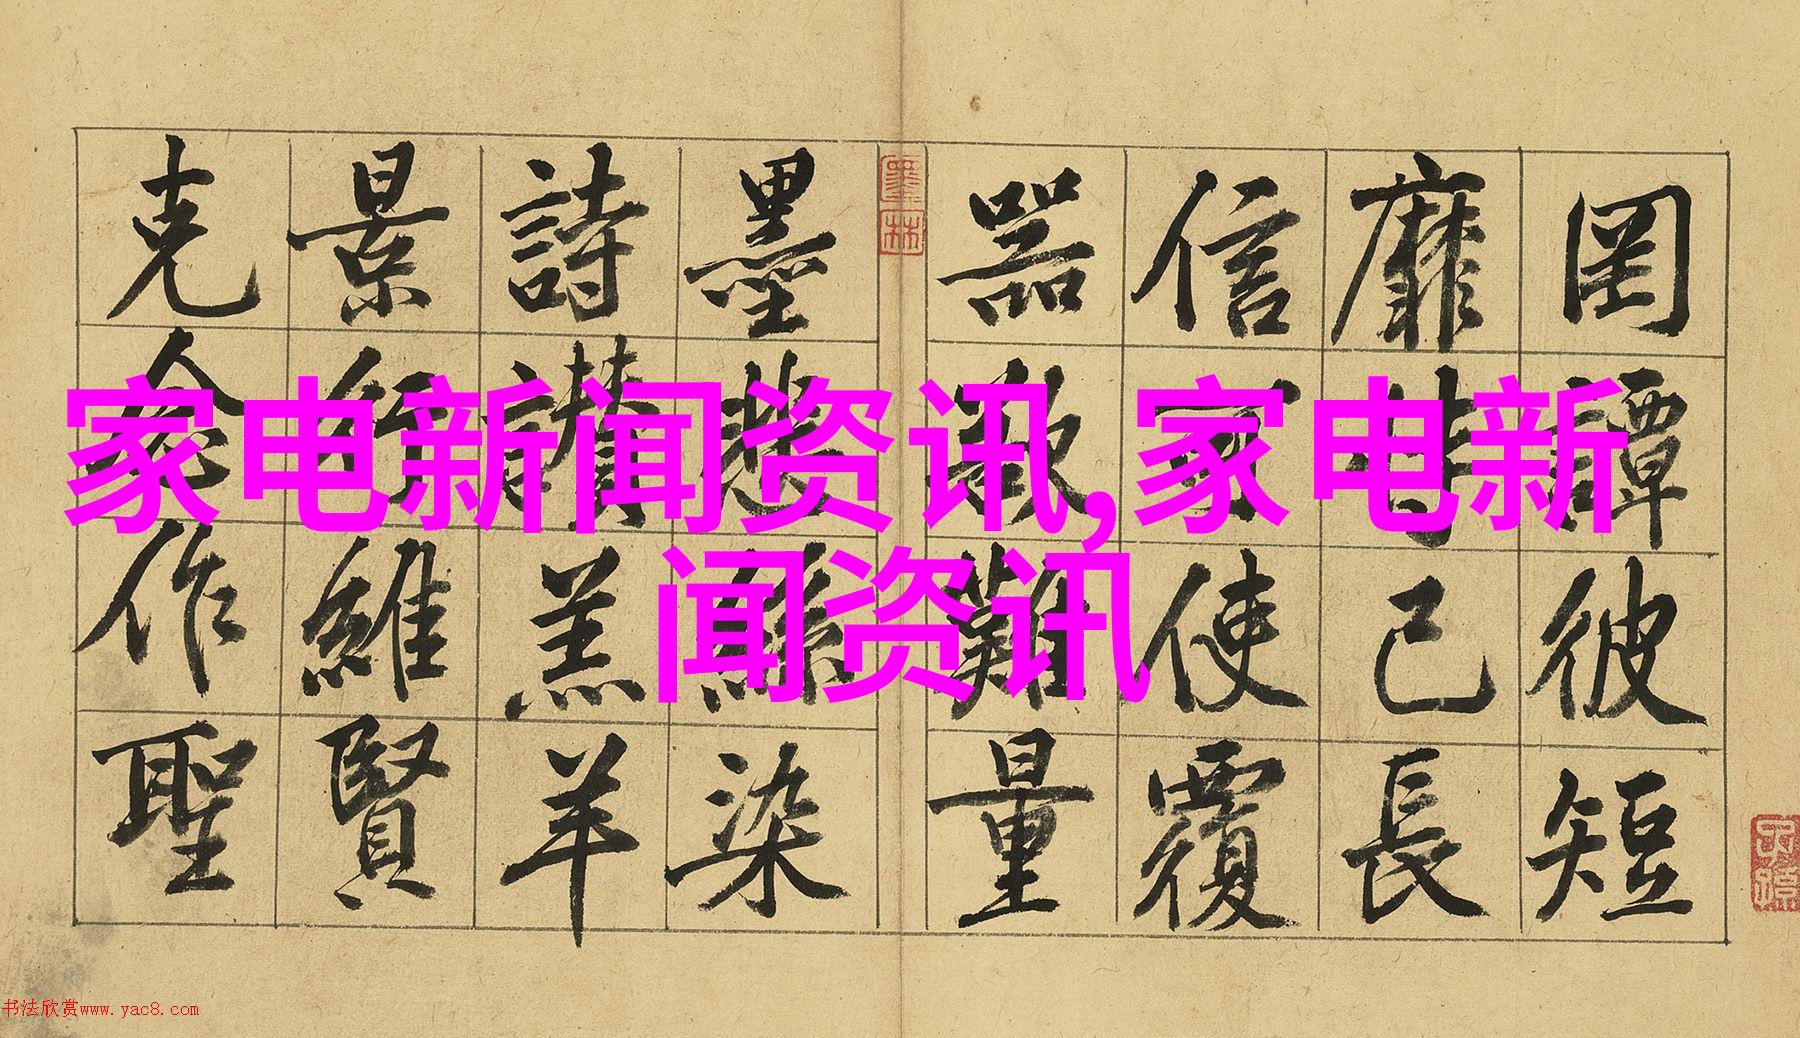 罔譚彼短
靡恃己長
信可使覆
器欲難量
墨悲絲染
詩讚羔羊
景行維賢
克念作聖
墨林
家电新闻资讯,家电新
闻资讯
书法欣赏www.yac8.com